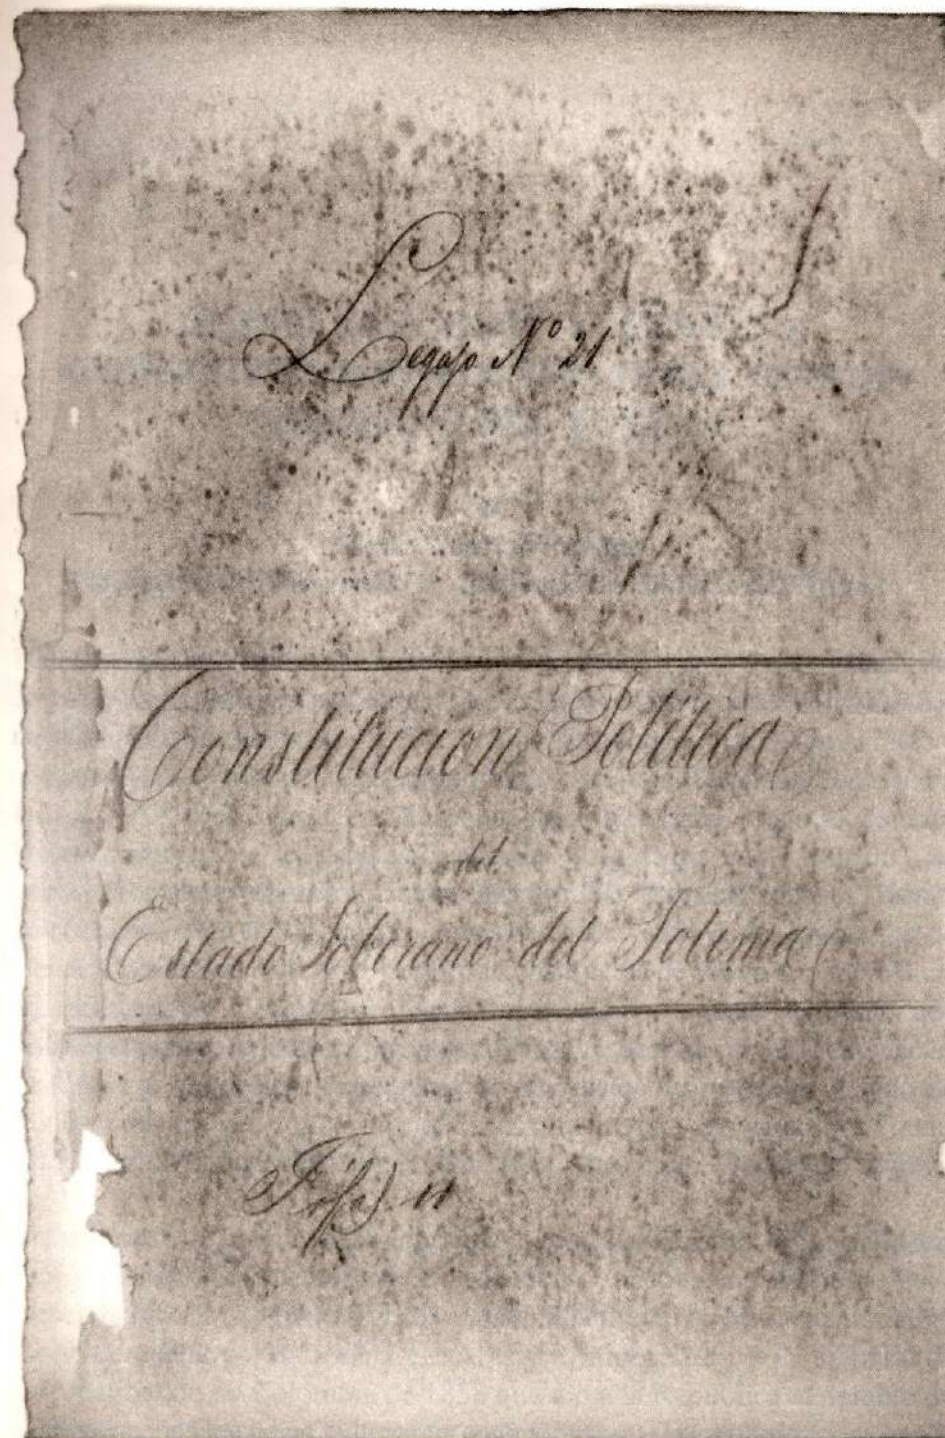 Legajo Nº 21
Constitucion Politica
del
Estado Soberano del Tolima